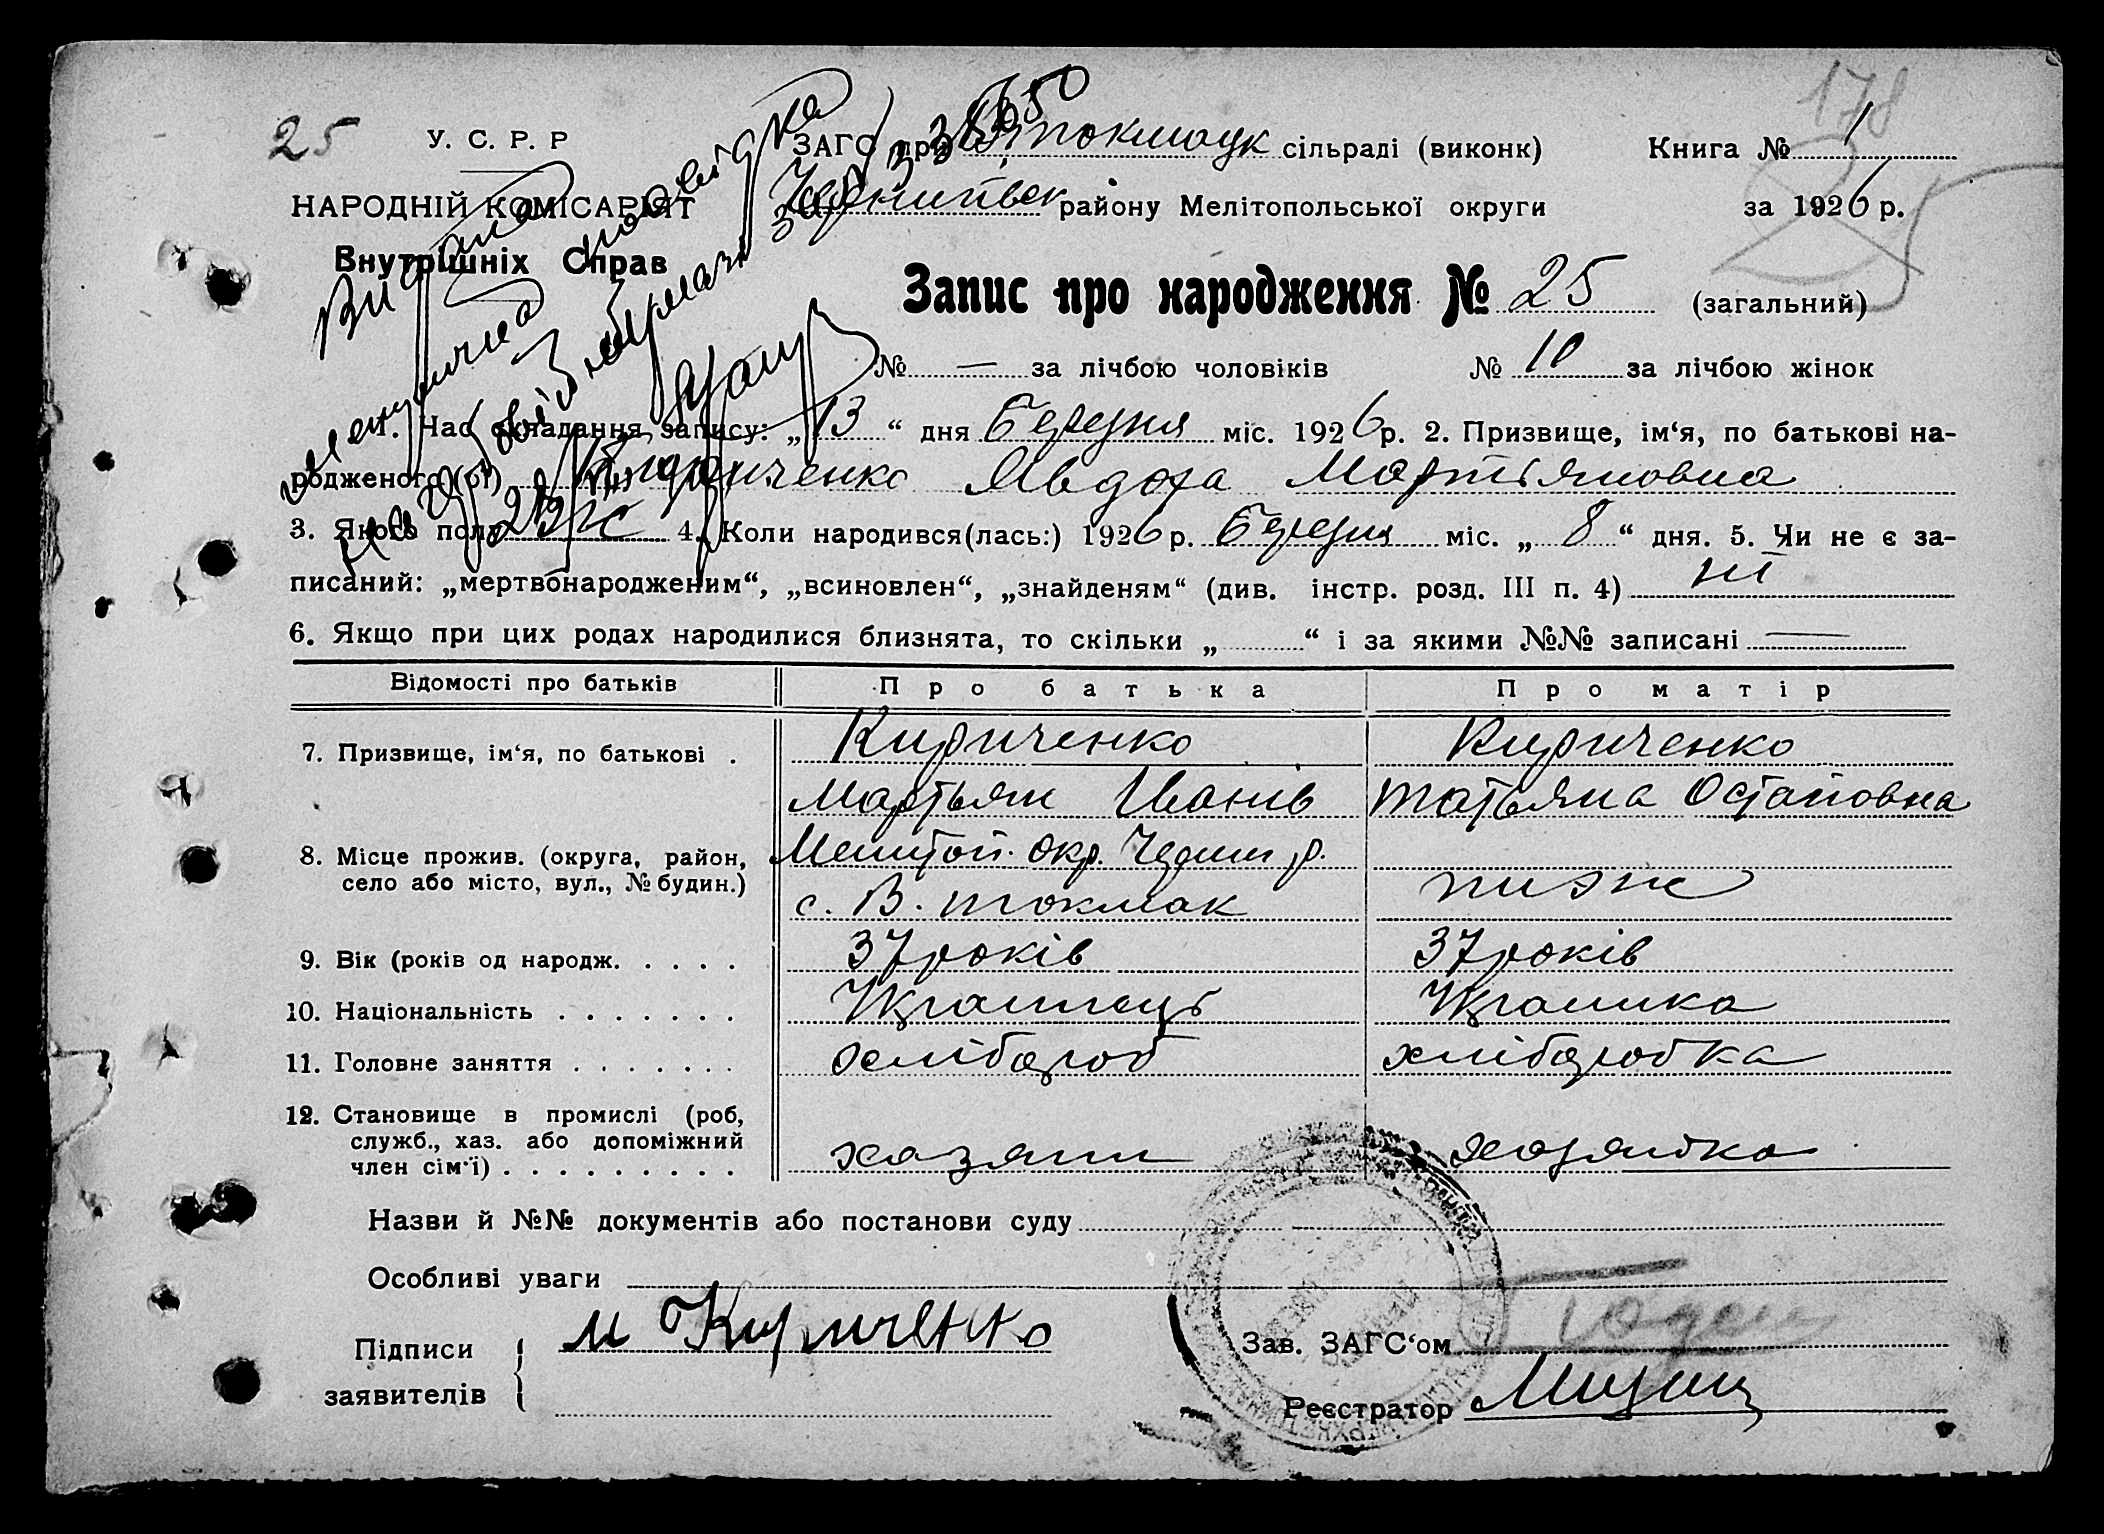 178
25 У. С. Р. Р ЗАГС при В. токмацк сільраді (виконк) Книга № 1
НАРОДНІЙ КОМІСАРІЯТ Черниговск району Мелітопольської округи за 1926 р.
Внутрішніх Справ
Видана повідка
Запис про народження № 25 (загальний)
№ — за лічбою чоловіків № 10 за лічбою жінок
1. Час складання запису: „13“ дня Березня міс. 1926 р. 2. Призвище, ім‘я, по батькові на-
родженого(ої) Кириченко Явдоха Мартіяновна
3. Якого полу Ж 4. Коли народився(лась:) 1926 р. Березня міс. „8“ дня. 5. Чи не є за-
писаний: „мертвонародженим“, „всиновлен“, „знайденям“ (див. інстр. розд. III п. 4) ні
6. Якщо при цих родах народилися близнята, то скільки „ “ і за якими №№ записані —
Відомості про батьків Про батька Про матір
7. Призвище, ім‘я, по батькові . Кириченко Кириченко
Мартьян Іванів Татьяна Остаповна
8. Місце прожив. (округа, район, Мелитоп. окр. Черниг р.
село або місто, вул., № будин.) с. В. токмак тиж
9. Вік (років од народж. . . . . 37 років 37 років
10. Національність . . . . . . . Українець Українка
11. Головне заняття . . . . . . . хлібороб хліборобка
12. Становище в промислі (роб,
служб., хаз. або допоміжний
член сім‘ї) . . . . . . . . . . хазяин хозяйка
Назви й №№ документів або постанови суду
Особливі уваги
Підписи М Кириченко Зав. ЗАГС‘ом
заявителів Реєстратор